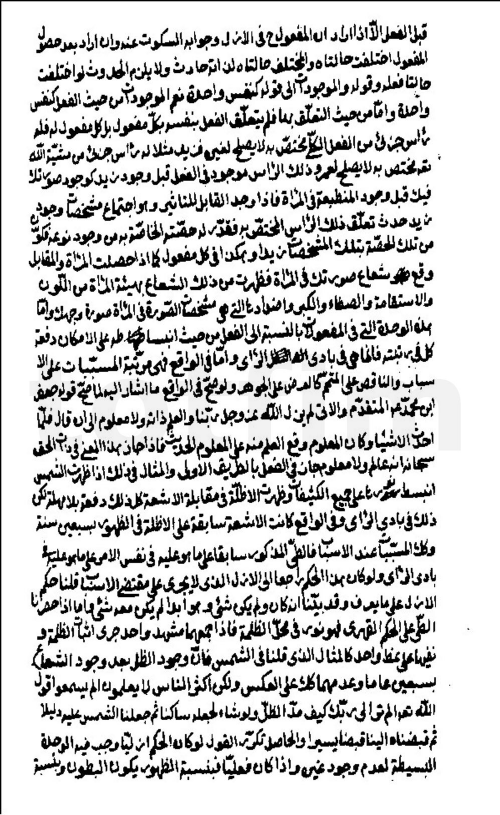 قبل الفعل الا اذا اراد ان المفعول ح في الازل وجوابه السكوت عنه وان اراد بعد حصول
المفعول اختلفت حالتاه والمختلف حالتاه لذاته حادث ولا يلزم الحدوث لو اختلفت
حالتا فعله وقوله والموجودات الى قوله كنفس واحدة نعم الموجودات من حيث الفعل كنفس
واحدة واما من حيث التعلق بها فلم يتعلق الفعل بنفسه بكل مفعول بل كل مفعول له فله
رأس جزئي من الفعل الكلي مختص به لا يصلح لغيره فزيد مثلا له رأس جزئي من مشية الله
تعالى مختص به لا يصلح لعمرو وذلك الرأس موجود في الفعل قبل وجود زيد كوجود صورتك
فيك قبل وجود المنطبعة في المرآة فاذا وجد القابل للتأثير وهو اجتماع مشخصات وجود
زيد حدث تعلق ذلك الرأس المختص به فقدر له حصته الخاصة به من وجود نوعه فكون
من تلك الحصة بتلك المشخصات زيدا وهكذا في كل مفعول كما اذا حصلت المرآة والمقابل
وقع شعاع صورتك في المرآة فظهرت من ذلك الشعاع بهيئة المرآة من الكون
والاستقامة والصفاء والكبر واضدادها التي هي مشخصات الصورة في المرآة صورة وجهك واما
هذه الوحدة التي في المفعولات بالنسبة الى الفعل من حيث انبساطه على الامكان دفعة
كل في رتبته فانما هي في بادي الرأي واما في الواقع فهي مرتبة المسببات على الا
سباب والناقص على المتمم كالعرض على الجوهر ولوضح في الواقع ما اشار اليه الماضي قول جعفر
ابن محمد المتقدم والا لم يزل الله عز وجل ربنا والعلم ذاته ولا معلوم الى ان قال فلما
احدث الاشياء وكان المعلوم وقع العلم منه على المعلوم الحديث فاذا جاز هذا المعنى في ذات الحق
سبحانه انه عالم ولا معلوم جاز في الفعل بالطريق الاولى والمثال في ذلك اذا ظهرت الشمس
انبسط نورها على جميع الكثيفات وظهرت الاظلة في مقابلة الاشعة كل ذلك دفعة بلا مهلة لكن
ذلك في بادي الرأي وفي الواقع كانت الاشعة سابقة على الاظلة في الظهور بسبعين سنة
وكل المسببات عند الاسباب فالظل المذكور سابقا على ما هو عليه في نفس الامر على ما هو عليه في
بادي الرأي ولو كان هذا الحكم راجعا الى الازل الذي لا يجري على مقتضى الاسباب قلنا حكم
الازل على ما يعرف وقد بينا انه كان ولم يكن شيء وهو ابدا لم يكن معه شيء واما اذا حصرنا
الظل على الحكم القهري فهو نور في محل الظلمة فاذا جمعهما مشهد واحد جرى اثبات الظلمة و
نفيها على نمط واحد كالمثال الذي قلنا في الشمس فان وجود الظل بعد وجود الشعاع
بسبعين عاما وعدمهما كل على العكس ولكن اكثر الناس لا يعلمون الم يسمعوا قول
الله تعالى الم تر الى ربك كيف مد الظل ولو شاء لجعله ساكنا ثم جعلنا الشمس عليه دليلا
ثم قبضناه الينا قبضا يسيرا والحاصل تكرير القول لو كان الحكم ازليا وجب فيه الوحدة
البسيطة لعدم وجود غيره واذا كان فعليا فبنسبة الظهور يكون البطون وبنسبة